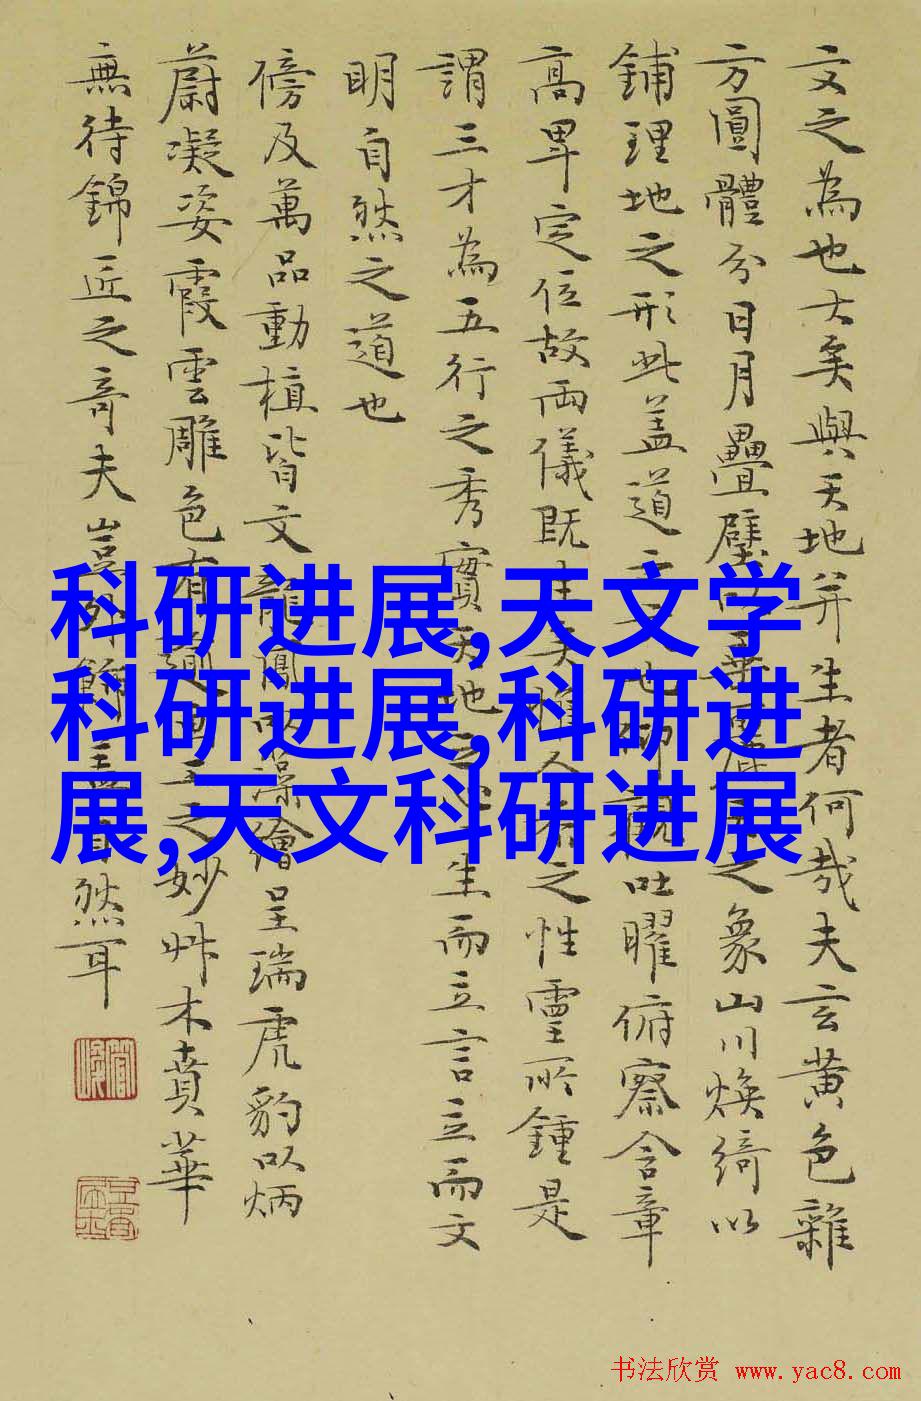 文之為也大矣與天地并生者何哉夫玄黄色雜
方圓體分日月疊璧以垂麗天之象山川焕綺以
鋪理地之形此盖道之文也仰觀吐曜俯察含章
高卑定位故兩儀既生矣惟人參之性靈所鍾是
謂三才為五行之秀實天地之心生而立言立而文
明自然之道也
傍及萬品動植皆文龍鳳以藻繪呈瑞虎豹以炳
蔚凝姿霞雲雕色有踰畫工之妙草木賁華
無待錦匠之奇夫豈外飾盖自然耳
科研进展,天文学
科研进展,科研进
展,天文科研进展
书法欣赏 www.yac8.com